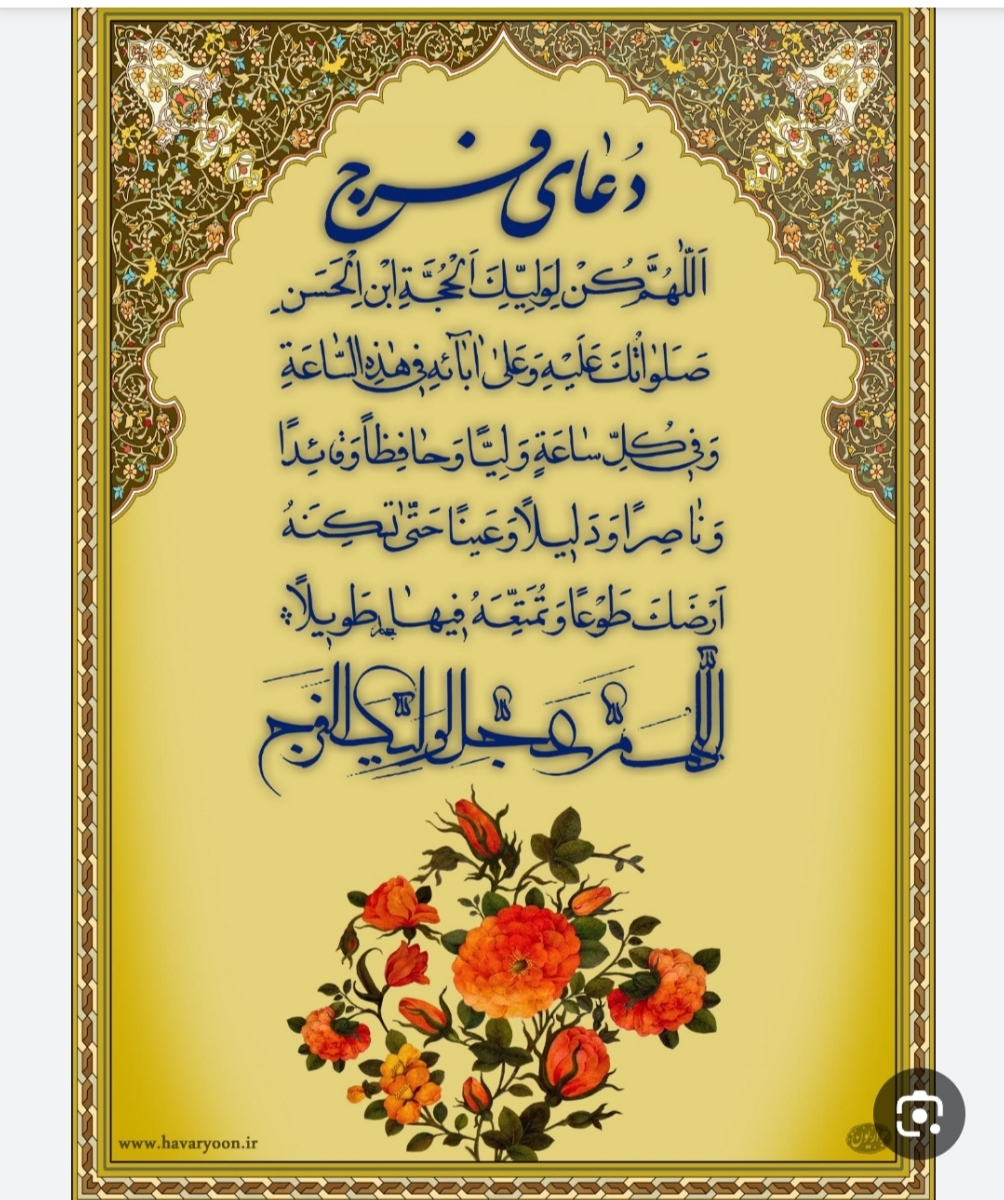 دُعٰای فرج
اَللّٰهُمَّ كُنْ لِوَلِيِّكَ اَلْحُجَّةِ ابْنِ الْحَسَنِ
صَلَوٰاتُكَ عَلَيْهِ وَعَلىٰ اٰبٰآئِهِ في هٰذِهِ السّٰاعَةِ
وَفي كُلِّ سٰاعَةٍ وَلِيًّا وَحٰافِظاً وَقٰائِدًا
وَنٰاصِرًا وَدَليلًا وَعَيناً حَتّىٰ تُسْكِنَهُ
اَرْضَكَ طَوْعًا وَتُمَتِّعَهُ فيهٰا طَويلًا
اللّهم عجل لوليک الفرج
www.havaryoon.ir